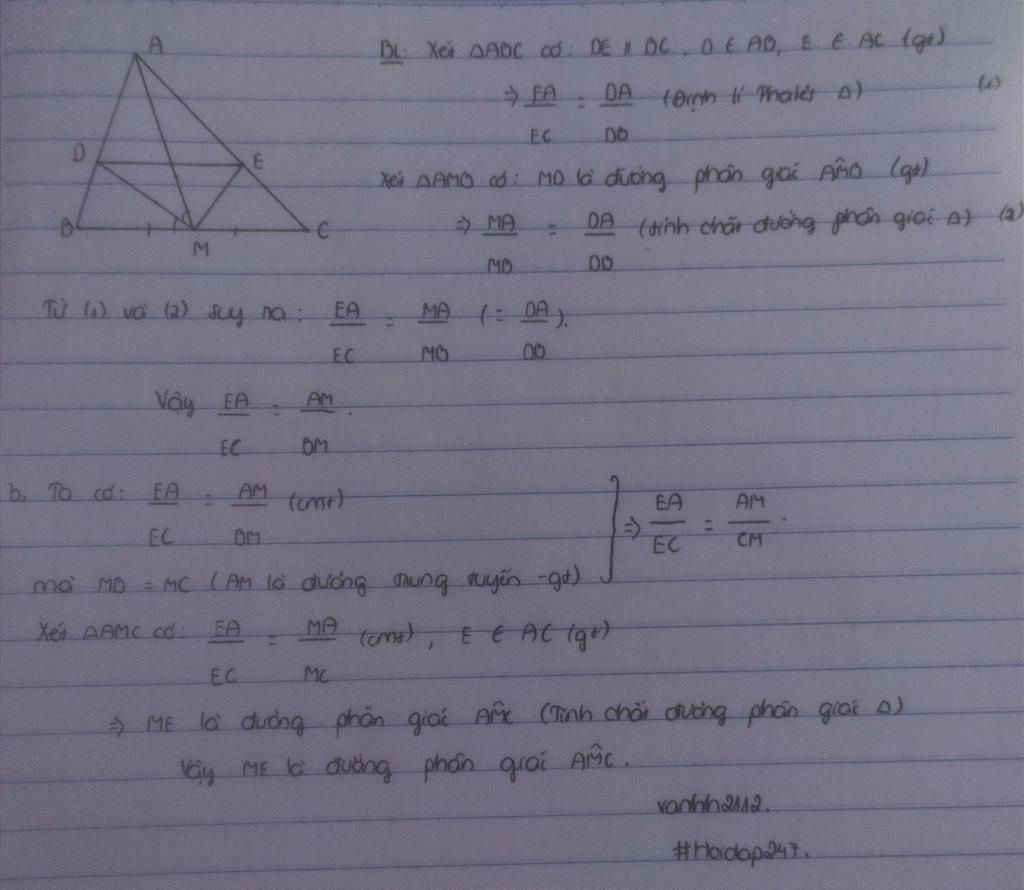 A
D
E
B
M
C
GL: Xét ΔABC có: DE // BC, D ∈ AB, E ∈ AC (gt)
⇒ EA/EC = DA/DB (Định lí Thalès Δ) (1)
Xét ΔAMB có: MD là đường phân giác AM̂B (gt)
⇒ MA/MB = DA/DB (tính chất đường phân giác Δ) (2)
Từ (1) và (2) suy ra: EA/EC = MA/MB (= DA/DB).
Vậy EA/EC = AM/BM.
b, Ta có: EA/EC = AM/BM (cmt)
mà MB = MC (AM là đường trung tuyến - gt)
⇒ EA/EC = AM/CM.
Xét ΔAMC có: EA/EC = MA/MC (cmt), E ∈ AC (gt)
⇒ ME là đường phân giác AM̂C (Tính chất đường phân giác Δ)
Vậy ME là đường phân giác AM̂C.
vanhh2112.
#Hoidap247.